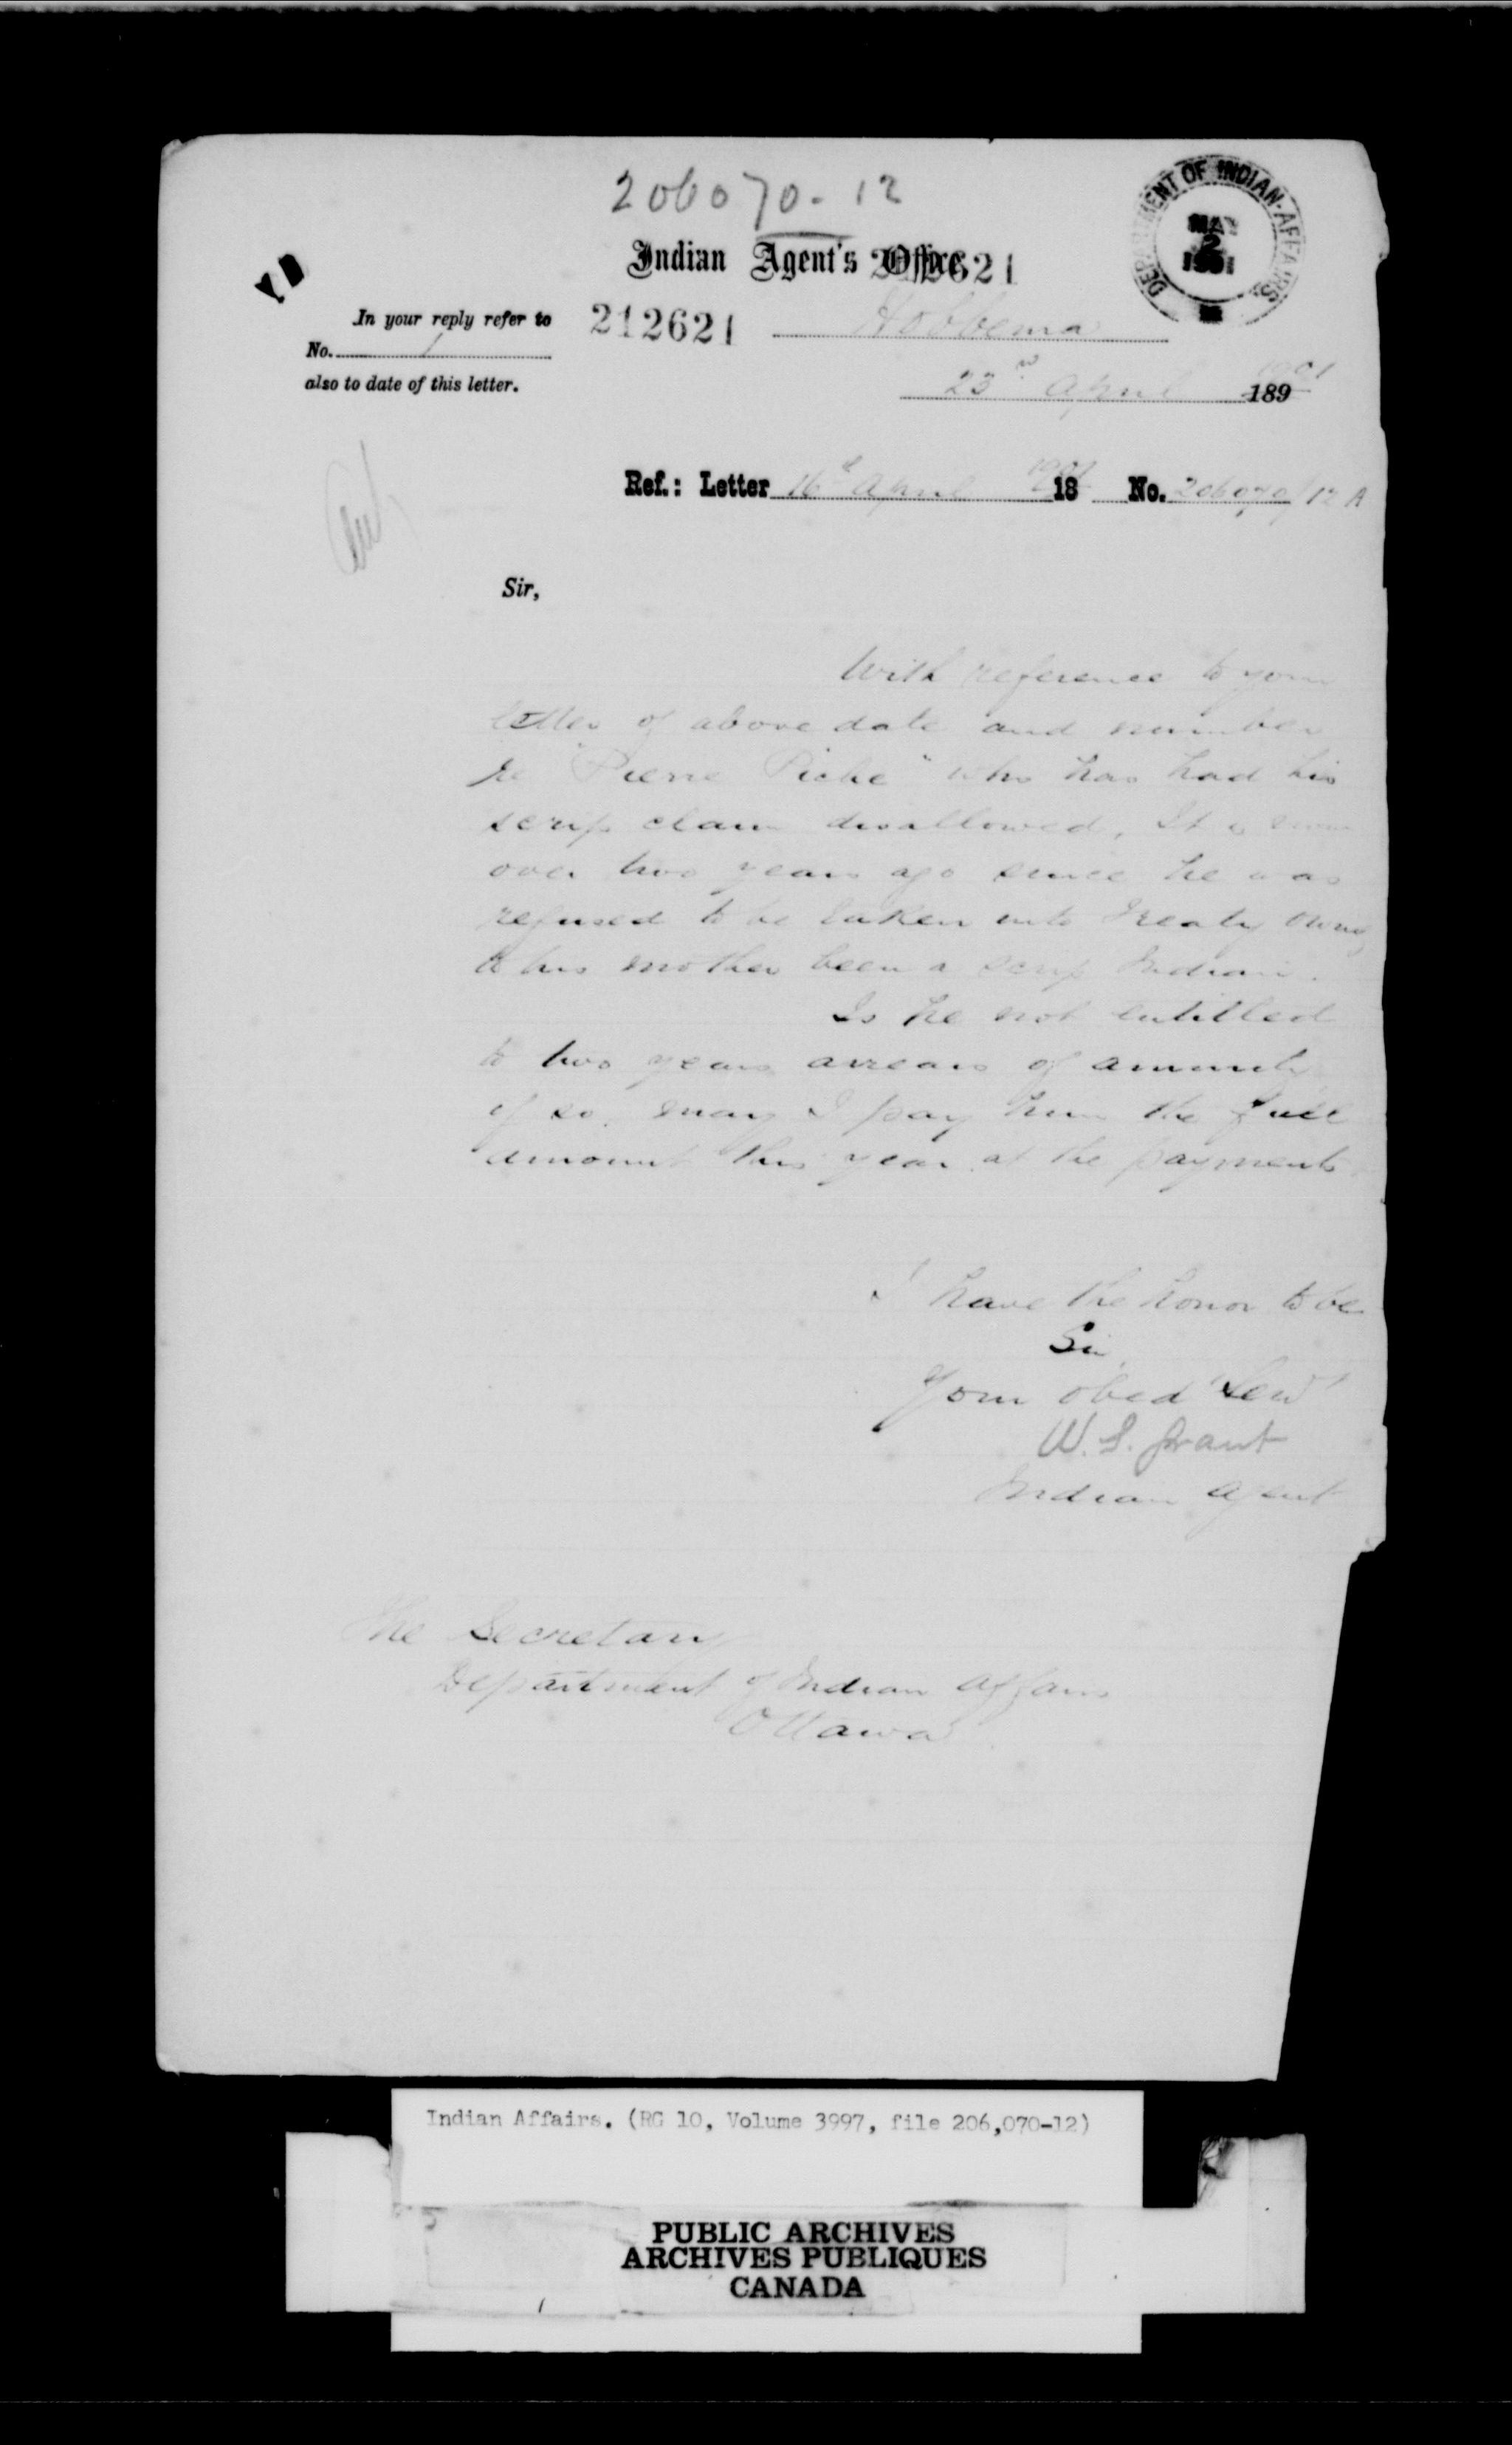 206070-12
DEPARTMENT OF INDIAN-AFFAIRS
MAY
2
1901
Indian Agent's Office
212621
In your reply refer to
212621
Hobbema
No. 1
also to date of this letter.
23rd April 1901
189
Ref.: Letter 16th April 1901 18 No. 206070/12 A
Sir,
With reference to your
letter of above date and number
re "Pierre Piche" who has had his
scrip claim disallowed, It is now
over two years ago since he was
refused to be taken into Treaty owing
to his mother been a scrip Indian.
Is he not entitled
to two years arrears of annuity
if so, may I pay him the full
amount this year at the payments
I have the honor to be
Sir
Your obed Servt
W. S. Grant
Indian Agent
The Secretary
Department of Indian Affairs
Ottawa
Indian Affairs. (RG 10, Volume 3997, file 206,070-12)
PUBLIC ARCHIVES
ARCHIVES PUBLIQUES
CANADA